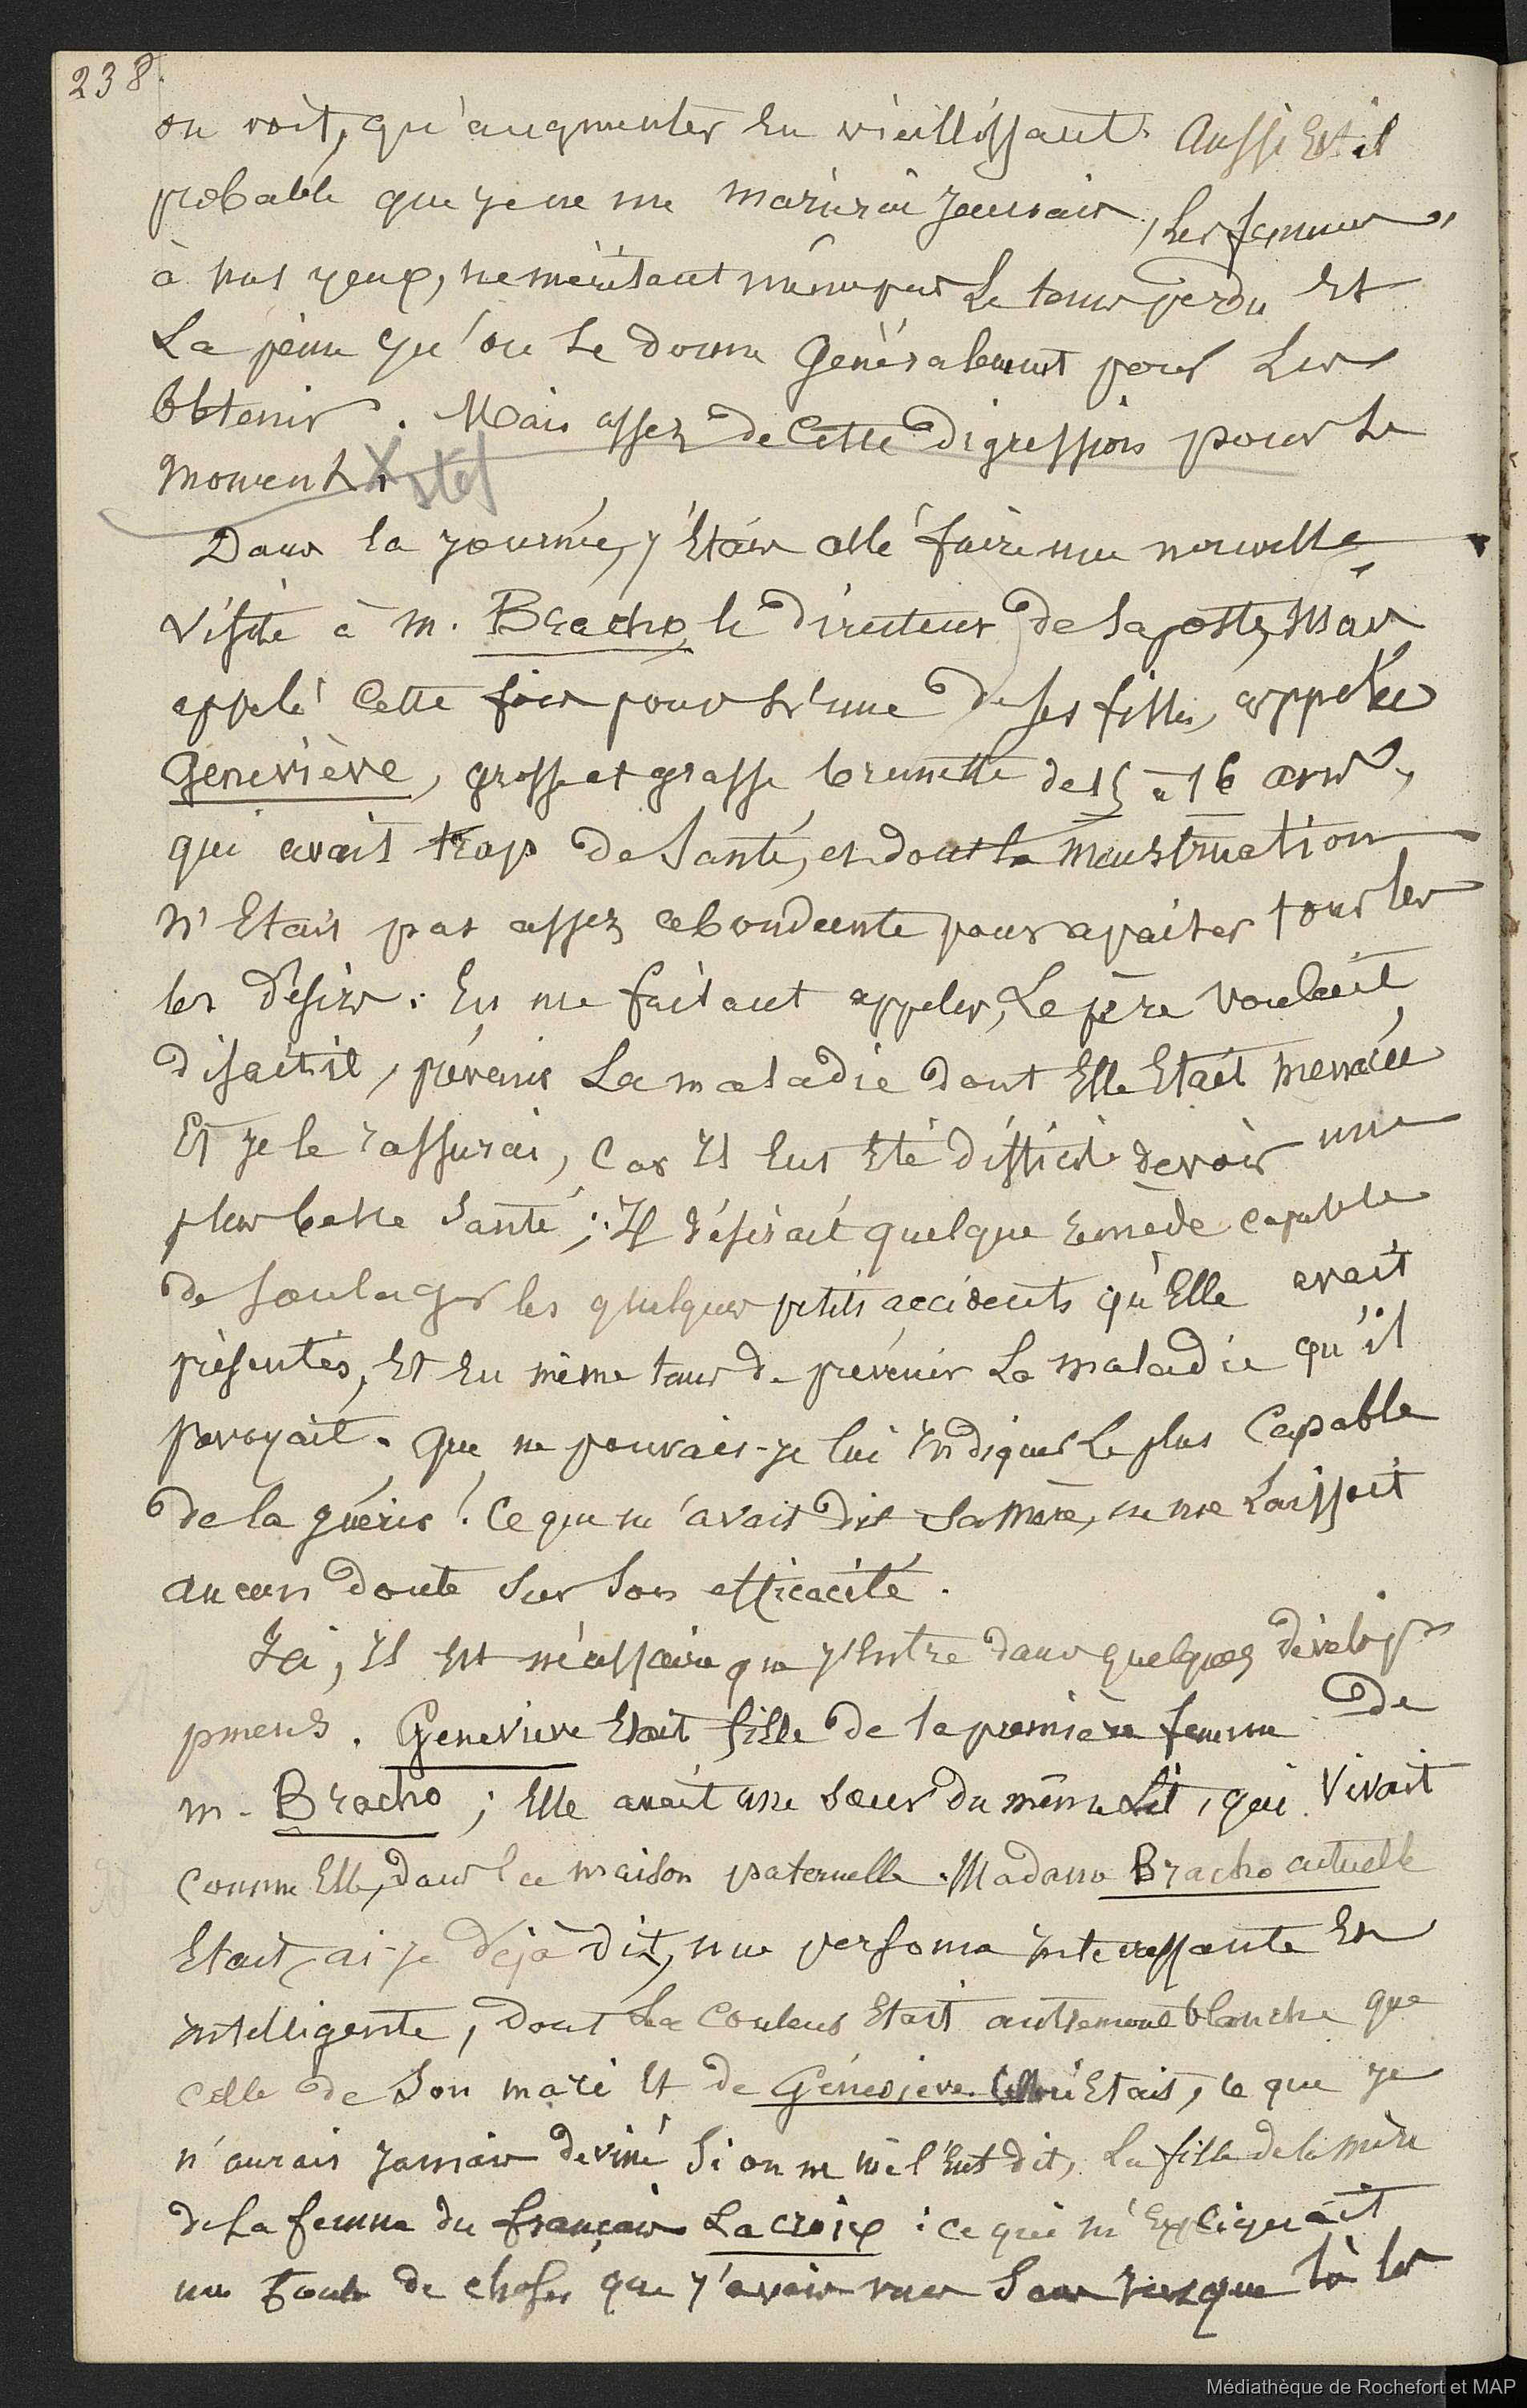 238.
on voit, qu'augmenter En vieillissant. Aussi Est-il
probable que je ne me marierai Jamais, les femmes,
à nos yeux, ne méritant même pas Le tems perdu Et
La peine qu'on se donne Généralement pour Les
Obtenir. Mais assez de Cette digression pour Le
moment.
Dans la journée, j'Etais allé faire une nouvelle
visite à M. Bracho, le directeur de la poste, Mais
appelé Cette fois pour L'une de ses filles, appelée
Geneviève, grosse et grasse brunette de 15 à 16 ans,
qui avait trop de Santé, et dont la menstruation
n'Etait pas assez abondante pour apaiser tous les
les désirs. En me faisant appeler, Le père voulait,
disait-il, prévenir La maladie dont Elle Etait menacée
Et je le rassurai, Car Il Eut Eté difficile de voir une
plus belle Santé; Il désirait quelque remède capable
de soulager les quelques petits accidents qu'Elle avait
présentés, Et En même tems de prévenir La maladie qu'il
prévoyait. Que ne pouvais-je lui Indiquer Le plus Capable
de la guérir! Ce que m'avait dit Sa mère, ne me Laissait
aucun doute Sur Son efficacité.
Ici, Il Est nécessaire que j'Entre dans quelques dévelop-
pmens. Genevieve Etait fille de la première femme de
m. Bracho; Elle avait une Sœur du même Lit, qui Vivait
comme Elle, dans la maison paternelle. Madame Bracho actuelle
Etait, ai-je déjà dit, une personne Interessante Et
intelligente, dont La Couleur Etait autrement blanche que
celle de Son mari Et de Géneviève. Elle Etait, ce que je
n'aurais jamais deviné Si on ne me l'Eut dit, La fille de la mère
de la femme du français Lacroix: ce qui m'Expliquait
une foule de choses que j'avais vues Sans jusque là les
Médiathèque de Rochefort et MAP